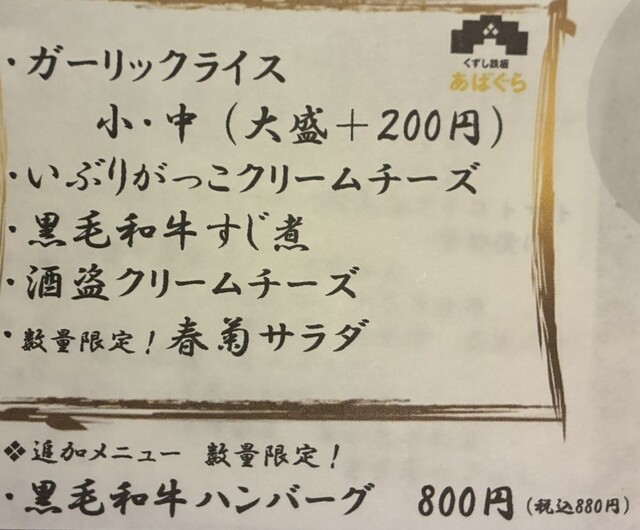 くずし鉄板
あばぐら
・ガーリックライス
小・中（大盛＋200円）
・いぶりがっこクリームチーズ
・黒毛和牛すじ煮
・酒盗クリームチーズ
・数量限定！春菊サラダ
❖追加メニュー 数量限定！
・黒毛和牛ハンバーグ 800円（税込880円）